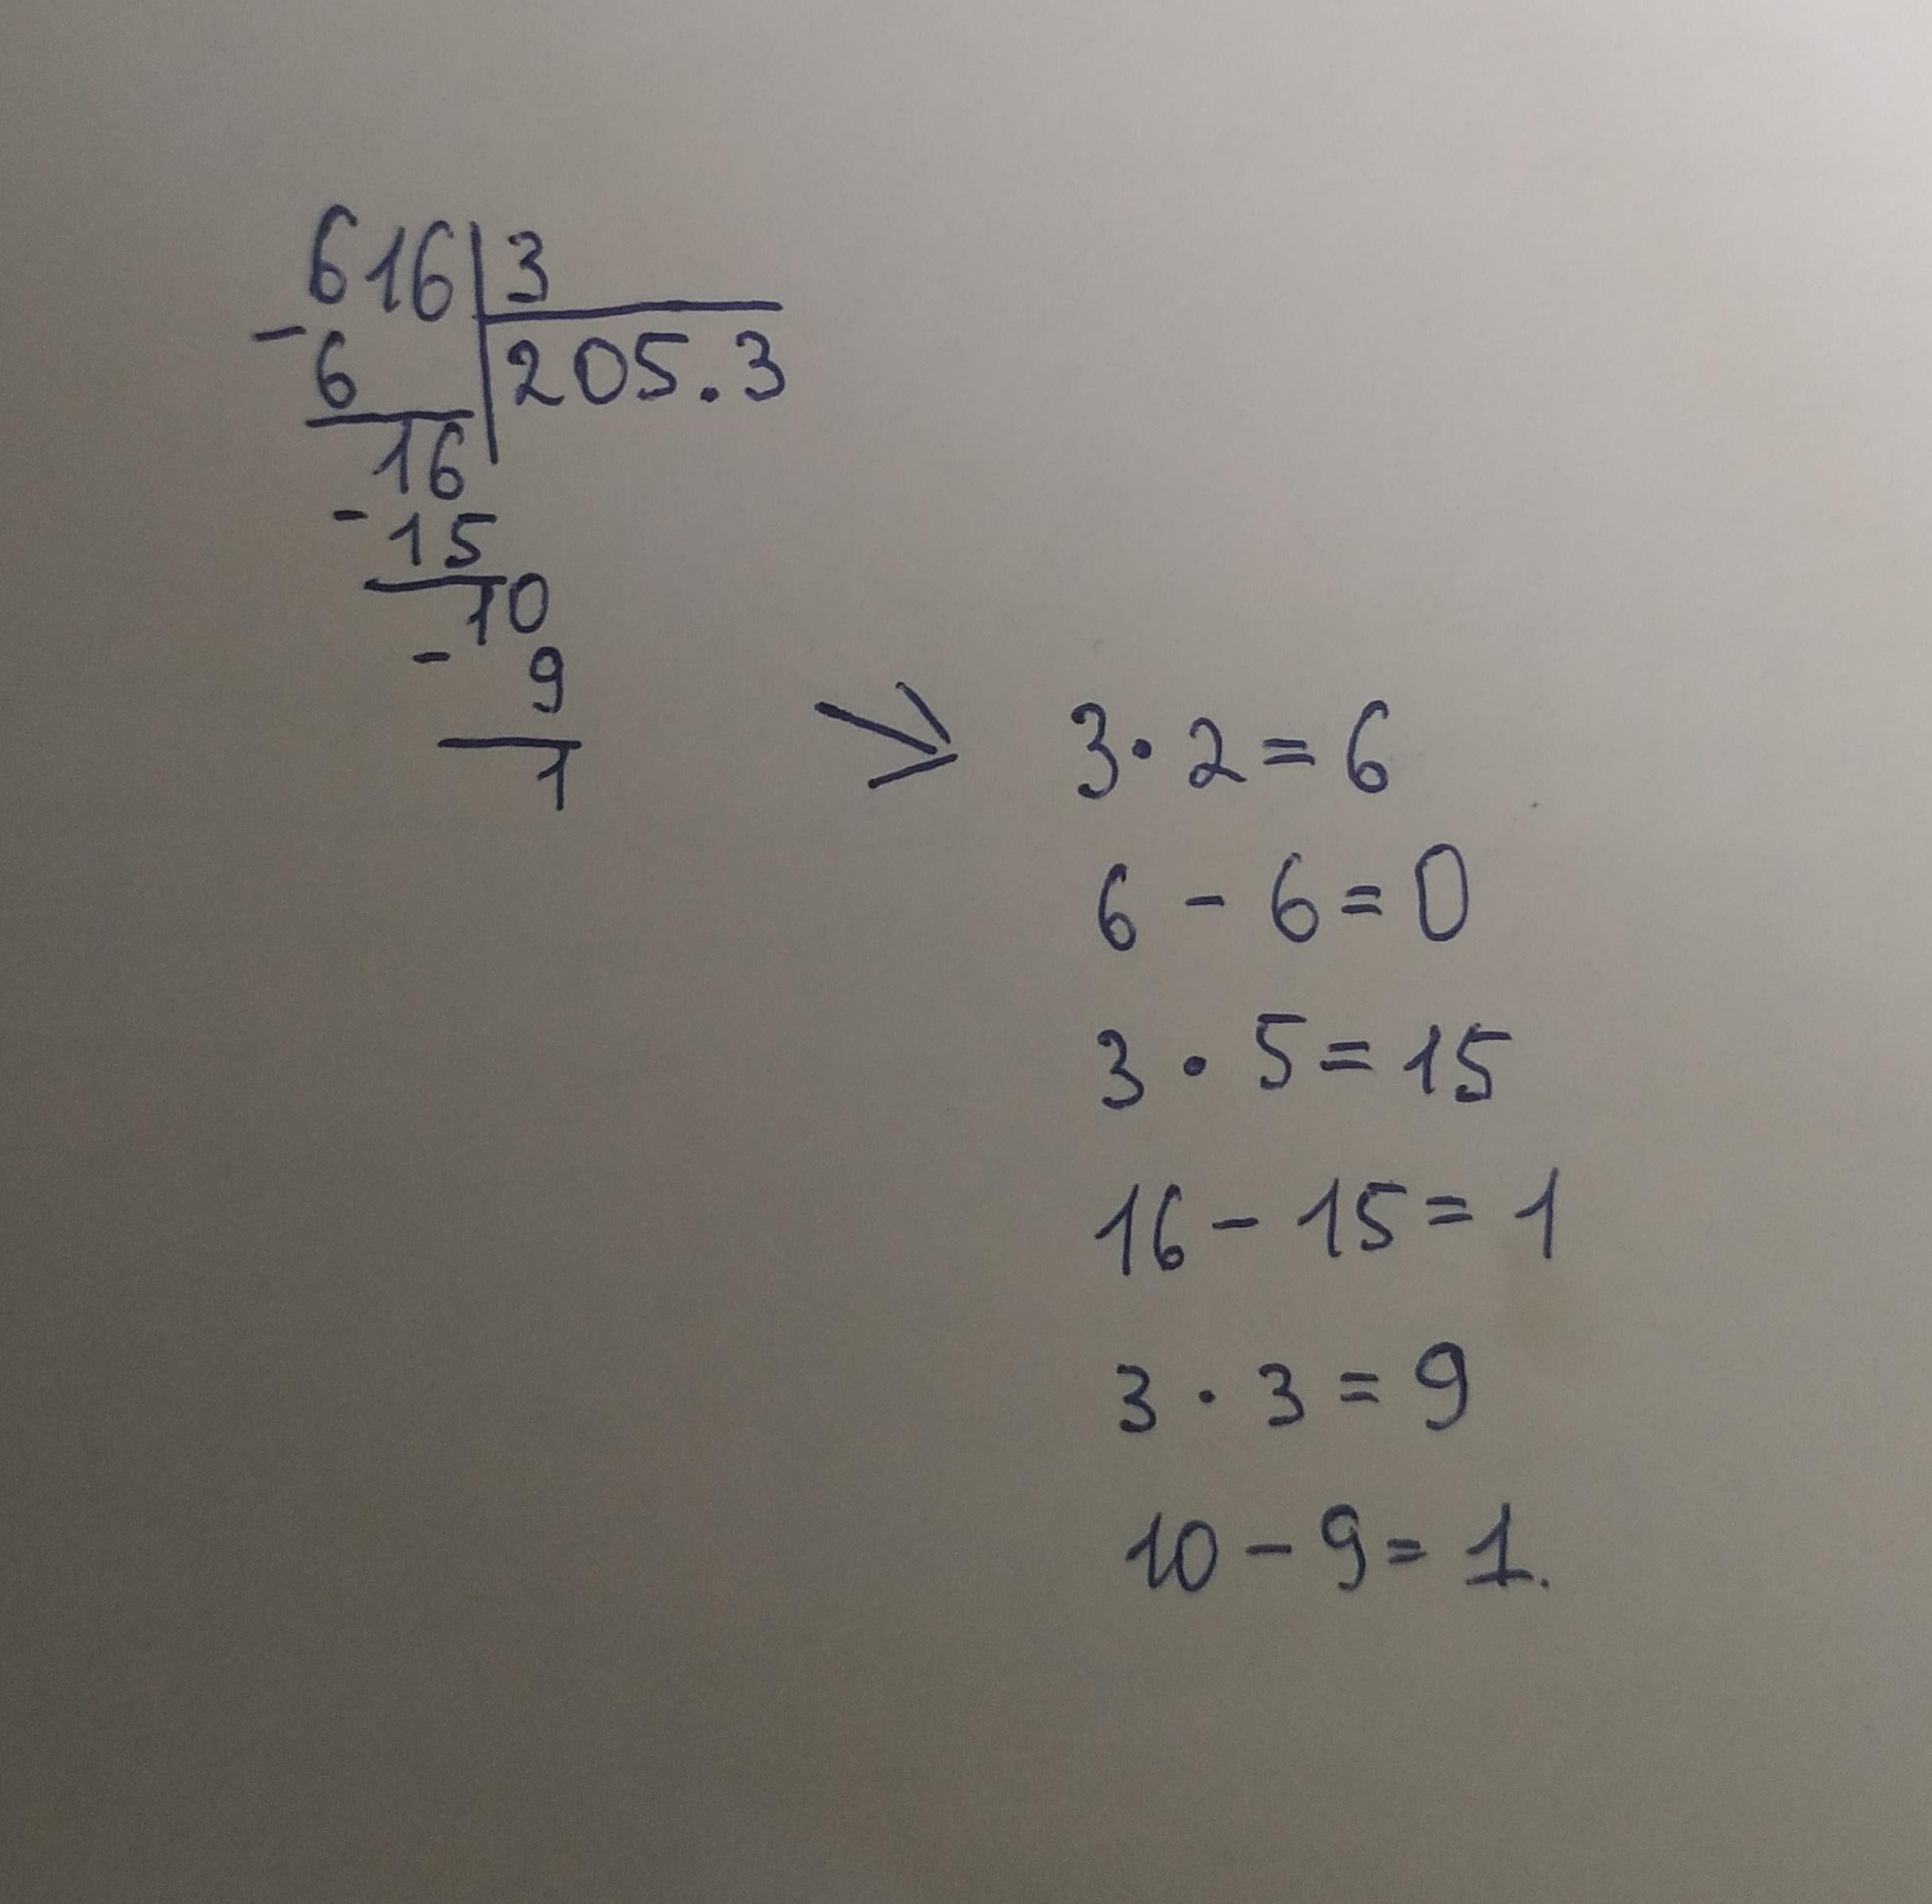 616 | 3
- 6 | 205.3
16
- 15
10
- 9
1
3 · 2 = 6
6 - 6 = 0
3 · 5 = 15
16 - 15 = 1
3 · 3 = 9
10 - 9 = 1.